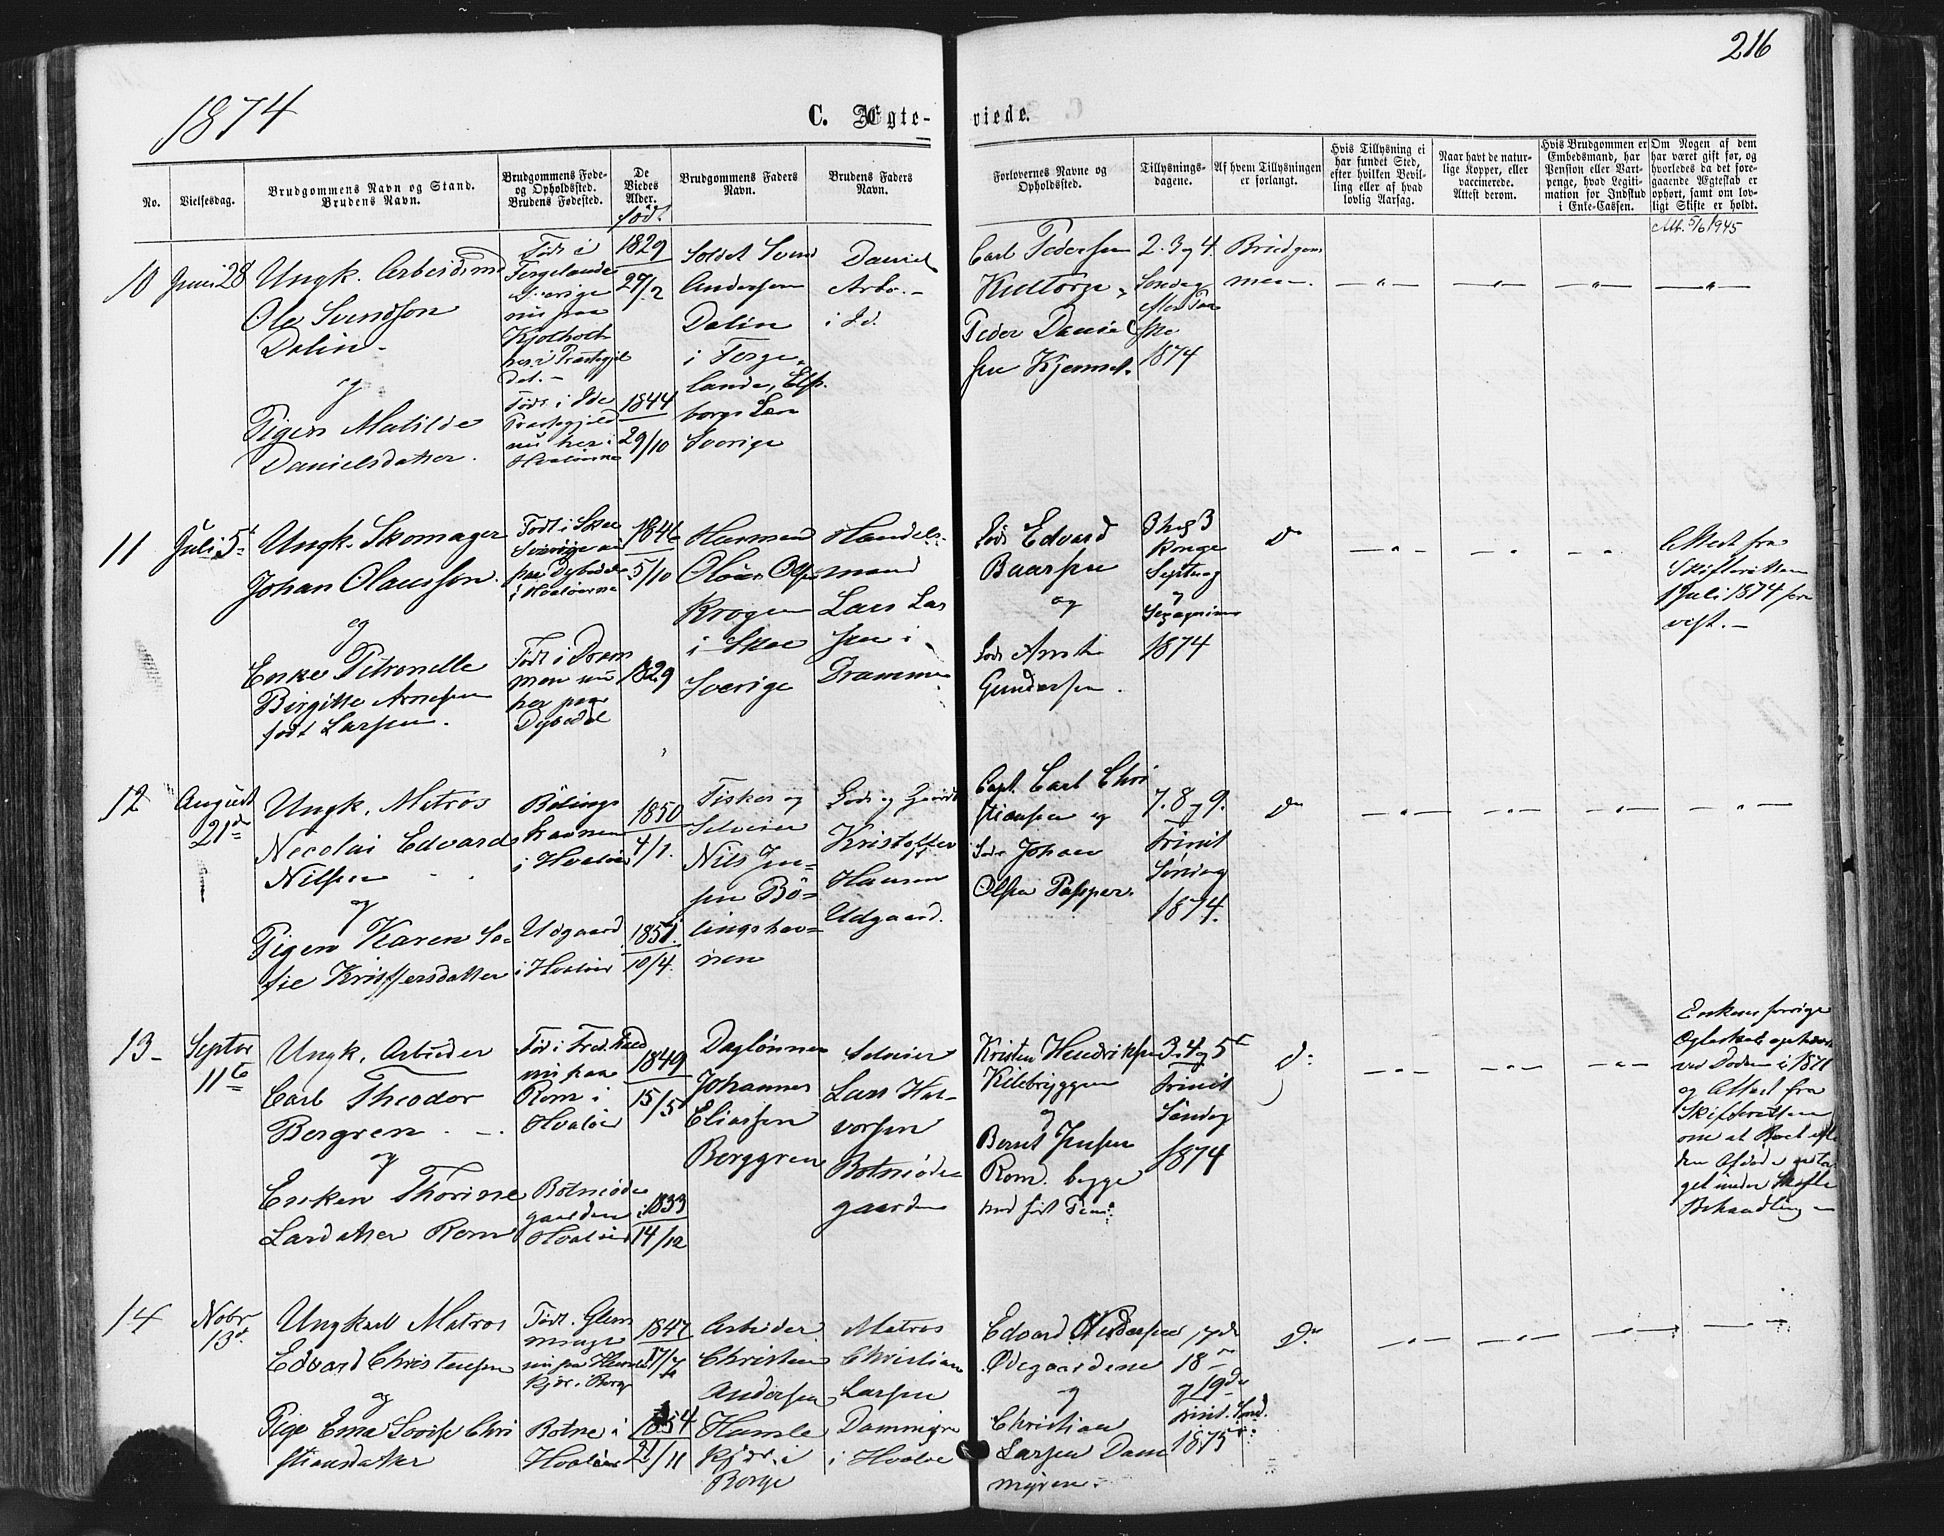 216
1874
C. Ægte-
viede.
No.
Vielsesdag.
Brudgommens Navn og Stand.
Brudens Navn.
Brudgommens Føde-
og Opholdssted.
Brudens Fødested.
De
Viedes
Alder.
født
Brudgommens Faders
Navn.
Brudens Faders
Navn.
Forlovernes Navne og
Opholdssted.
Tillysnings-
dagene.
Af hvem Tillysningen
er forlangt.
Hvis Tillysning ei
har fundet Sted,
efter hvilken Bevil-
ling eller af hvad
lovlig Aarsag.
Naar havt de natur-
lige Kopper, eller
vaccinerede.
Attest derom.
Hvis Brudgommen er
Embedsmand, har
Pension eller Vart-
penge, hvad Legiti-
mation for Indskud
i Enke-Cassen.
Om Nogen af dem
har været gift før, og
hvorledes da det fore-
gaaende Ægteskab er
ophørt, samt om lov-
ligt Skifte er holdt.
Att. 5/6 1945
10
Juni 28
Ungk. Arbeidsmd
Ole Svendsen
Dalin -
og
Pigen Matilde
Danielsdatter.
Født i
Fergelanda
Sverige
nu paa
Kjølholt
her i Præstegjel
det. -
Født i Ide
Præstegjeld
nu her i
Hvaløerne
1829
27/2
1844
29/10
Soldat Svend
Andersen
Dalin
i Ferge
landa, Elfs
borgs Læn
Sverige
Daniel
Arbr. -
i Id.
Carl Pedersen
Peder Daniel
sen Kjemset.
2. 3 og 4.
Søndag
efter Paa
ske
1874
Brudgom
men.
11
Juli 5t
Ungk. Skomager
Johan Olaussen.
og
Enke Petronelle
Birgitte Arnesen
født Larsen.
Født i Skee
Sverige nu
paa Dybedal
i Hvaløerne
Født i Dram
men nu
her paa
Dybedal
1846
5/10
1829
Olaus Olsen
Krogen
i Skee
Sverige
Handels-
mand
Lars Lar
sen i
Drammen
Lods Edvard
Baarsen
og
Lods
Gundersen.
Konge
Septuag
og
1874
do
Attest fra
Skifteretten
1 Juli 1874 fore
vist. -
12
August
21de
Ungk. Matros
Nicolai Edvard
Nilsen
og
Pigen Karen So-
fie Kristfersdatter
Bølings
havnen
i Hvaløer
Udgaard
i Hvaløer
1850
4/1.
1851
10/4.
Fisker og
Selveier
Nils Jen-
sen Bø-
lingshav-
nen
Lods og Gaardb
Kristoffer
Hansen
Udgaard.
Capt. Carl Chri
stiansen og
Lods Johan
Olsen Papper.
7. 8 og 9.
Trinit
Søndag
1874.
do
13 -
Septbr
11te
Ungk. Arbeider
Carl Theodor
Bergren. -
og
Enken Thorine
Larsdatter Rom
Fød i Fred.stad
nu paa
Rom i
Hvaløer
Botneøde
gaarden i
Hvaløer
1849
15/5
1833
14/12
Daglønner
Johannes
Eliassen
Berggren
Selveier
Lars Hal-
vorsen
Botneøde
gaarden
Kristen Hendriksen
Kilebryggen
og
Bernt Jensen
Rom. begge
3. 4 og 5te
Trinit
Søndag
1874
do
Enkens forrige
Ægteskab ophævet
ved Døden i 1871
og Attest fra
Skifteretten
om at Boet efter
den Afdøde er ta
get under Skifte
Behandling -
14
Nobr
13de
Ungkarl Matros
Edvard Christensen
og
Pige Ema Lovise Chri
stiansdatter
Født. Glem
minge
nu paa Humle
kjær i Borge
Botne i
Hvaløer
1847
17/7
1854
21/11
Arbeider
Christen
Andersen
Humle
kjær i
Borge
Matros
Christian
Larsen
Dammyren
i Hvaløe
Edvard Andersen
Ødegaardene
og
Christian
Larsen Dam
myren.
17de
18de
og 19de
Trinit. Sønd.
1875
do